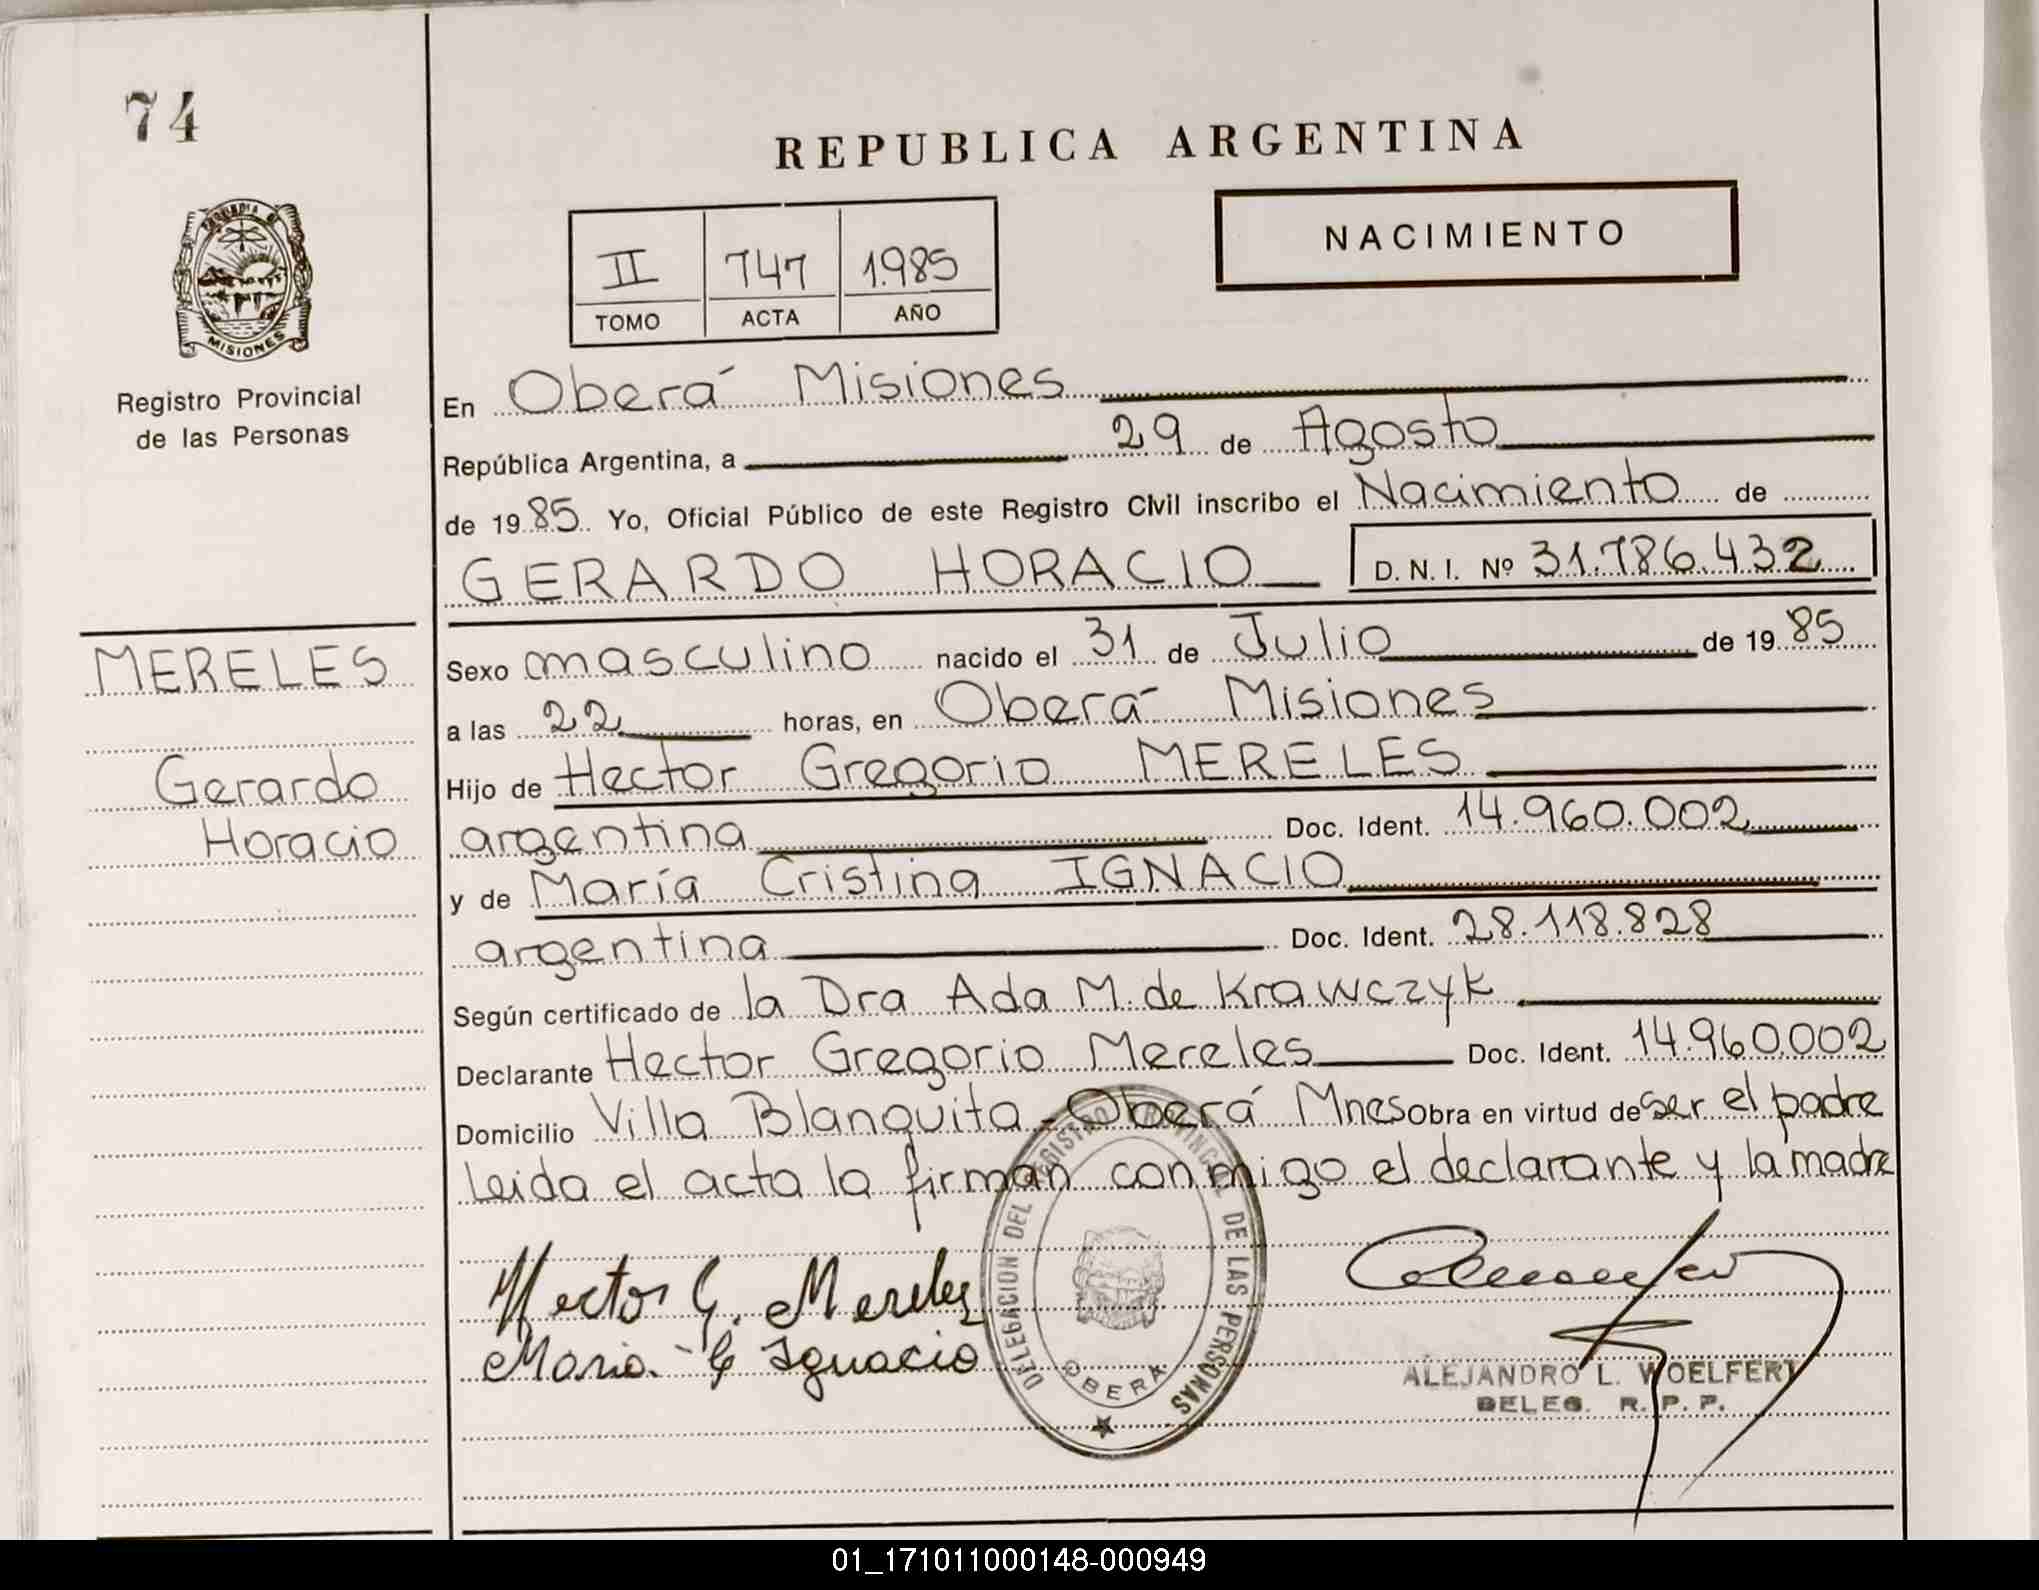 74
REPUBLICA ARGENTINA
PROVINCIA DE
MISIONES
Registro Provincial
de las Personas
II 747 1.985
TOMO ACTA AÑO
NACIMIENTO
En Oberá Misiones
República Argentina, a 29 de Agosto
de 1985 Yo, Oficial Público de este Registro Civil inscribo el Nacimiento de
GERARDO HORACIO D. N. I. Nº 31.786.432
MERELES
Gerardo
Horacio
Sexo masculino nacido el 31 de Julio de 1985
a las 22 horas, en Oberá Misiones
Hijo de Hector Gregorio MERELES
argentina Doc. Ident. 14.960.002
y de María Cristina IGNACIO
argentina Doc. Ident. 28.118.828
Según certificado de la Dra Ada M. de Krawczyk
Declarante Hector Gregorio Mereles Doc. Ident. 14.960.002
Domicilio Villa Blanquita - Oberá Mnes obra en virtud de ser el padre
Leida el acta la firman conmigo el declarante y la madre
Hector G. Mereles
Maria C Ignacio
DELEGACION DEL REGISTRO PROVINCIAL DE LAS PERSONAS
OBERA
ALEJANDRO L. WOELFERT
DELEG. R. P. P.
01_171011000148-000949